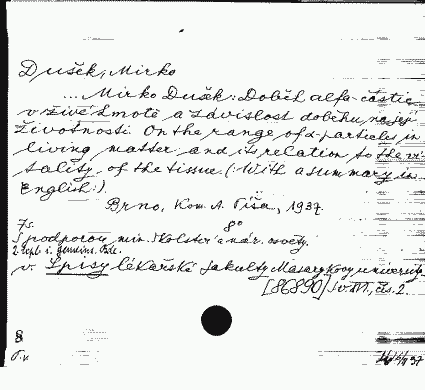 Dušek, Mirko
... Mirko Dušek: Doběh alfa-částic
v živé hmotě a závislost doběhu na její
životnosti. On the range of α-particles in
living matter and its relation to the vi-
tality of the tissue. (: With a summary in
English:).
Brno, Kom. A. Píša, 1937
7 s. 8°
S podporou min. školství a nár. osvěty.
v. Spisy lékařské fakulty Masarykovy university
[86890] sv. XVI, čís. 2.